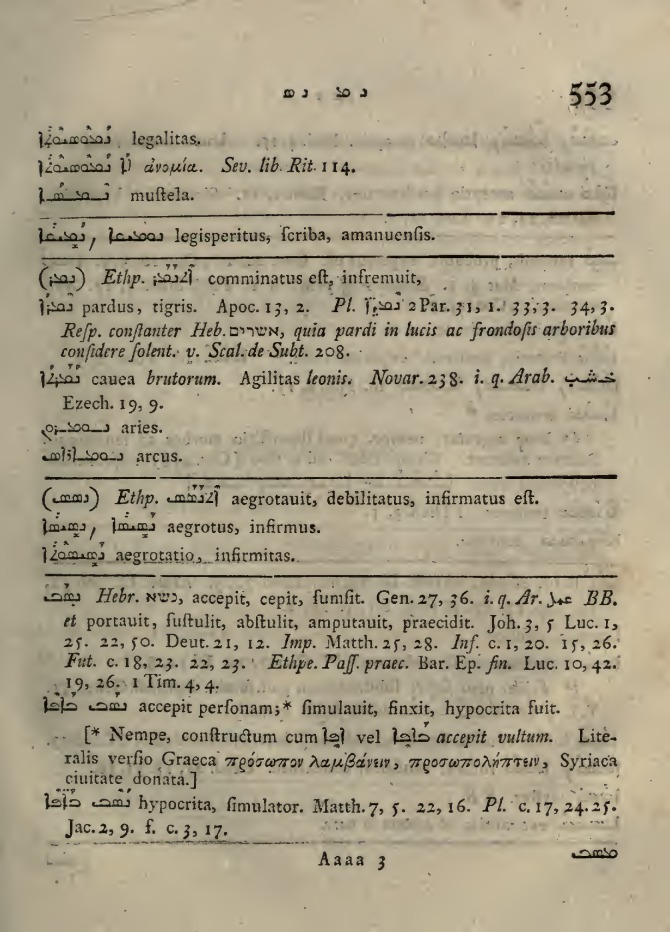 ܢܡ . ܢܣ 553
ܢܡܘܣܝܘܬܐ legalitas.
ܠܐ ܢܡܘܣܝܘܬܐ ἀνομία. Sev. lib. Rit. 114.
muſtela.
legisperitus, ſcriba, amanuenſis.
(ܢܡܪ) Ethp. ܐܬܢܡܪ comminatus eſt, infremuit,
ܢܡܪܐ pardus, tigris. Apoc. 13, 2. Pl. ܢܡܪ̈ܐ 2 Par. 31, 1. 33, 3. 34, 3.
Reſp. conſtanter Heb. אשרים, quia pardi in lucis ac frondoſis arboribus
conſidere ſolent. v. Scal. de Subt. 208.
cauea brutorum. Agilitas leonis. Novar. 238. i. q. Arab. خشب
Ezech. 19, 9.
aries.
arcus.
(ܢܣܣ) Ethp. ܐܬܢܣܣ aegrotauit, debilitatus, infirmatus eſt.
ܢܣܝܣܐ, ܢܣܝܣܐ aegrotus, infirmus.
ܢܣܝܣܘܬܐ aegrotatio, infirmitas.
ܢܣܒ Hebr. נשא, accepit, cepit, ſumſit. Gen. 27, 36. i. q. Ar. BB.
et portauit, ſuſtulit, abſtulit, amputauit, praecidit. Joh. 3, 5 Luc. 1,
25. 22, 50. Deut. 21, 12. Imp. Matth. 25, 28. Inf. c. 1, 20. 15, 26.
Fut. c. 18, 23. 22, 23. Ethpe. Paſſ. praec. Bar. Ep. fin. Luc. 10, 42.
19, 26. 1 Tim. 4, 4.
ܢܣܒ ܒܐܦܐ accepit perſonam;* ſimulauit, finxit, hypocrita fuit.
[* Nempe, conſtructum cum ܐܦܐ vel ܒܐܦܐ accepit vultum. Lite-
ralis verſio Graeca πρόσωπον λαμβάνειν, προσωπολήπτειν, Syriaca
ciuitate donata.]
ܢܣܒ ܒܐܦܐ hypocrita, ſimulator. Matth. 7, 5. 22, 16. Pl. c. 17, 24. 25.
Jac. 2, 9. f. c. 3, 17.
Aaaa 3 ܡܢܣܒ